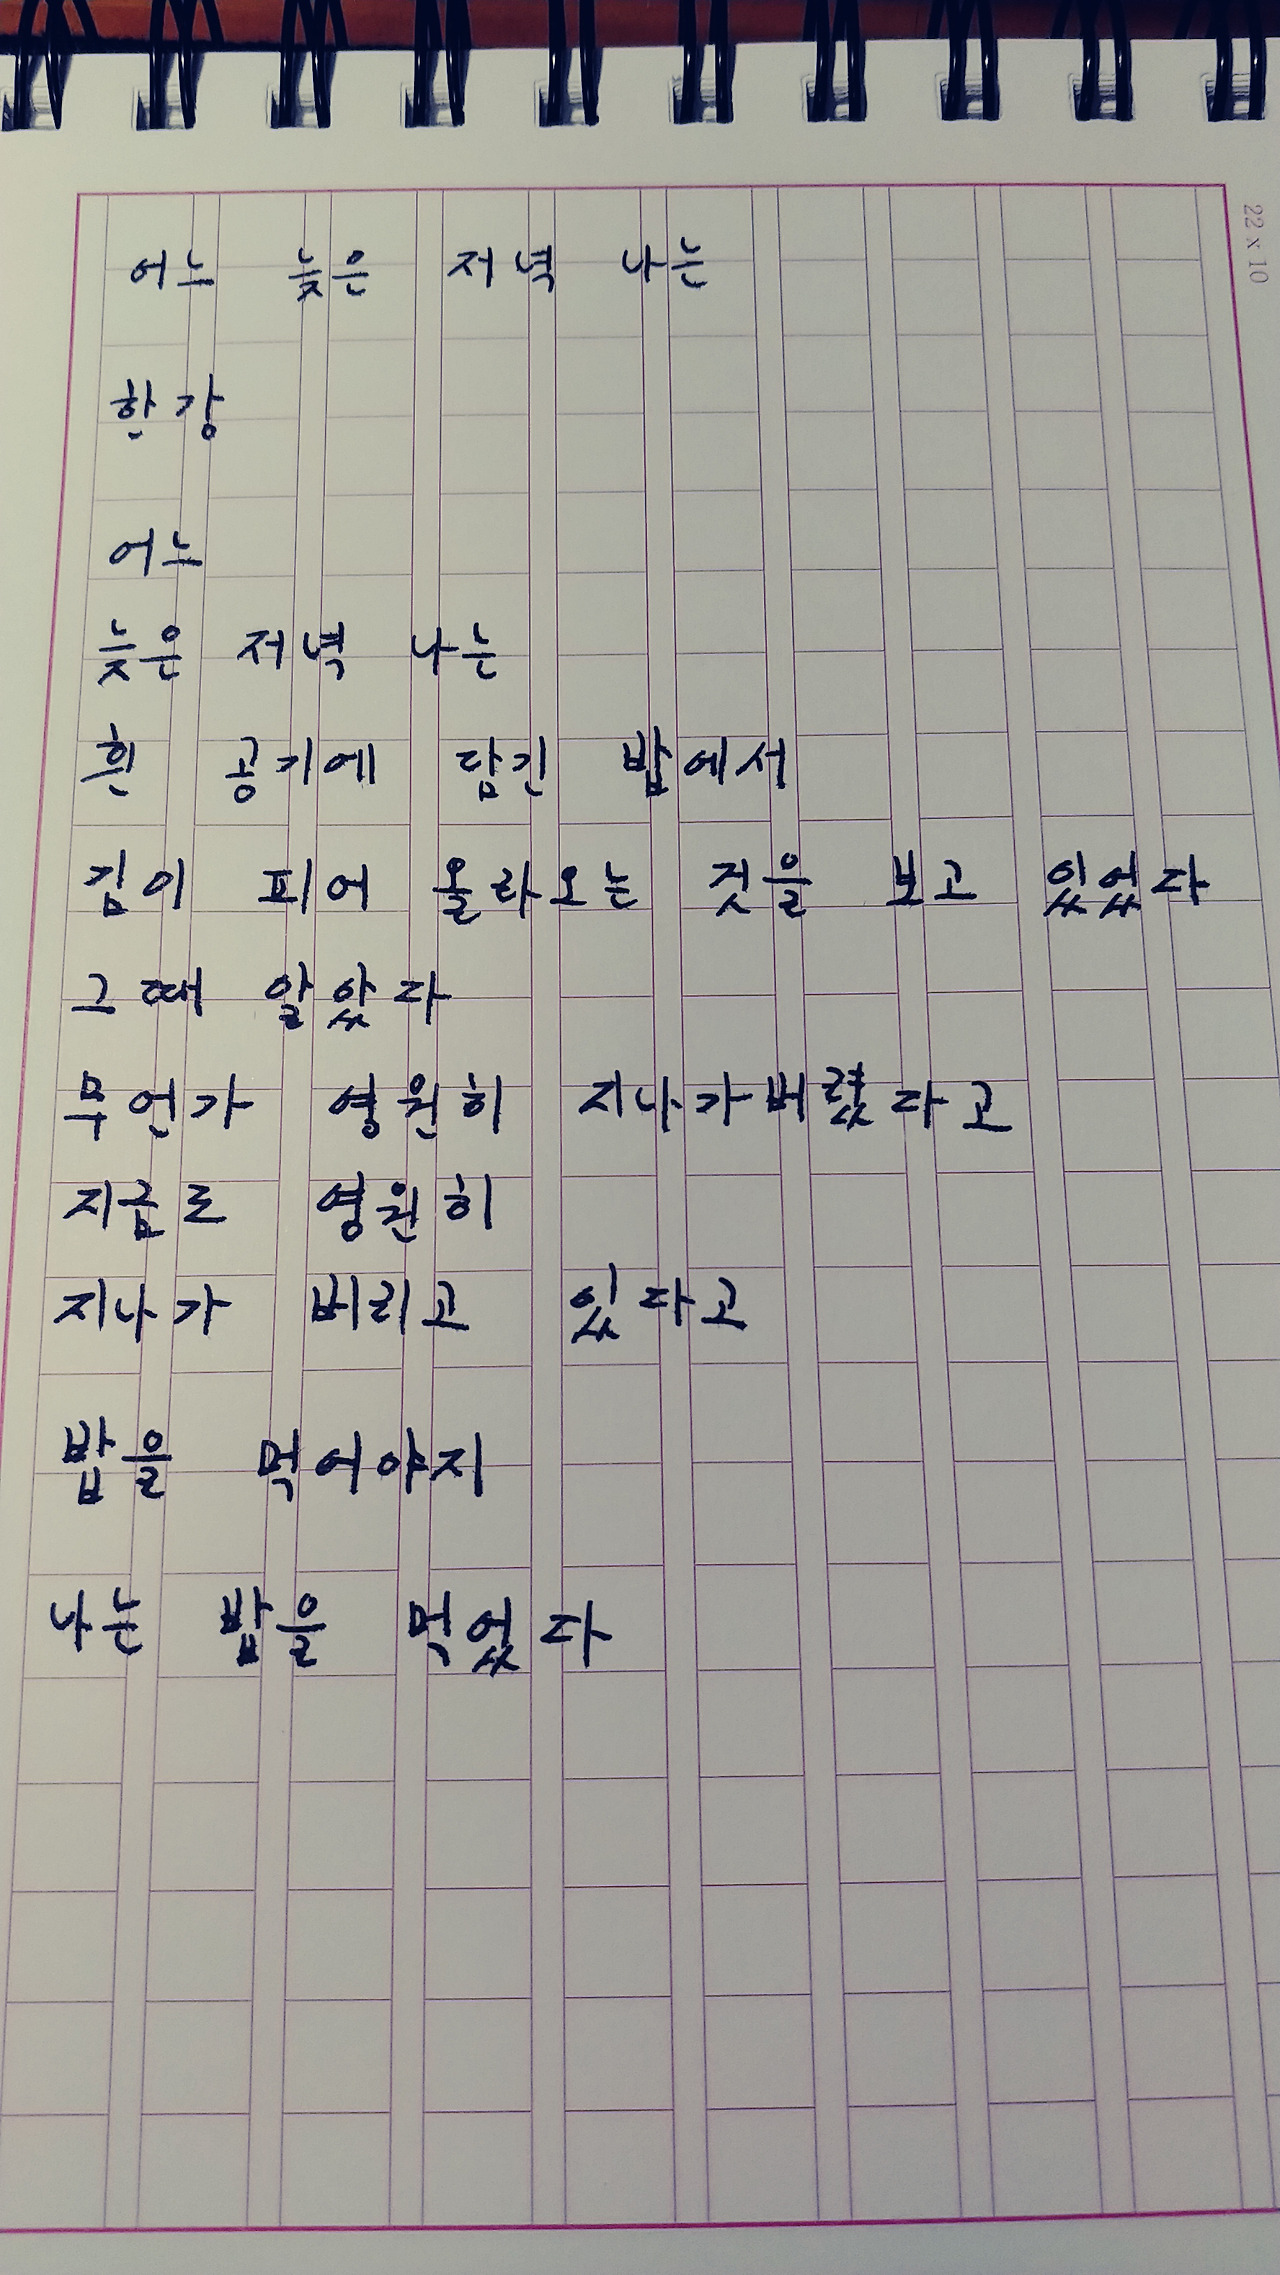 어느 늦은 저녁 나는
한강
어느
늦은 저녁 나는
흰 공기에 담긴 밥에서
김이 피어 올라오는 것을 보고 있었다
그때 알았다
무언가 영원히 지나가버렸다고
지금도 영원히
지나가 버리고 있다고
밥을 먹어야지
나는 밥을 먹었다
22 x 10